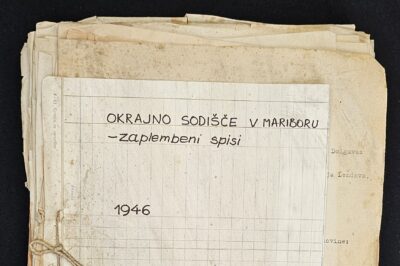 OKRAJNO SODIŠČE V MARIBORU
-zaplembeni spisi
1946
Dolgavas
Lendava.
ovine: